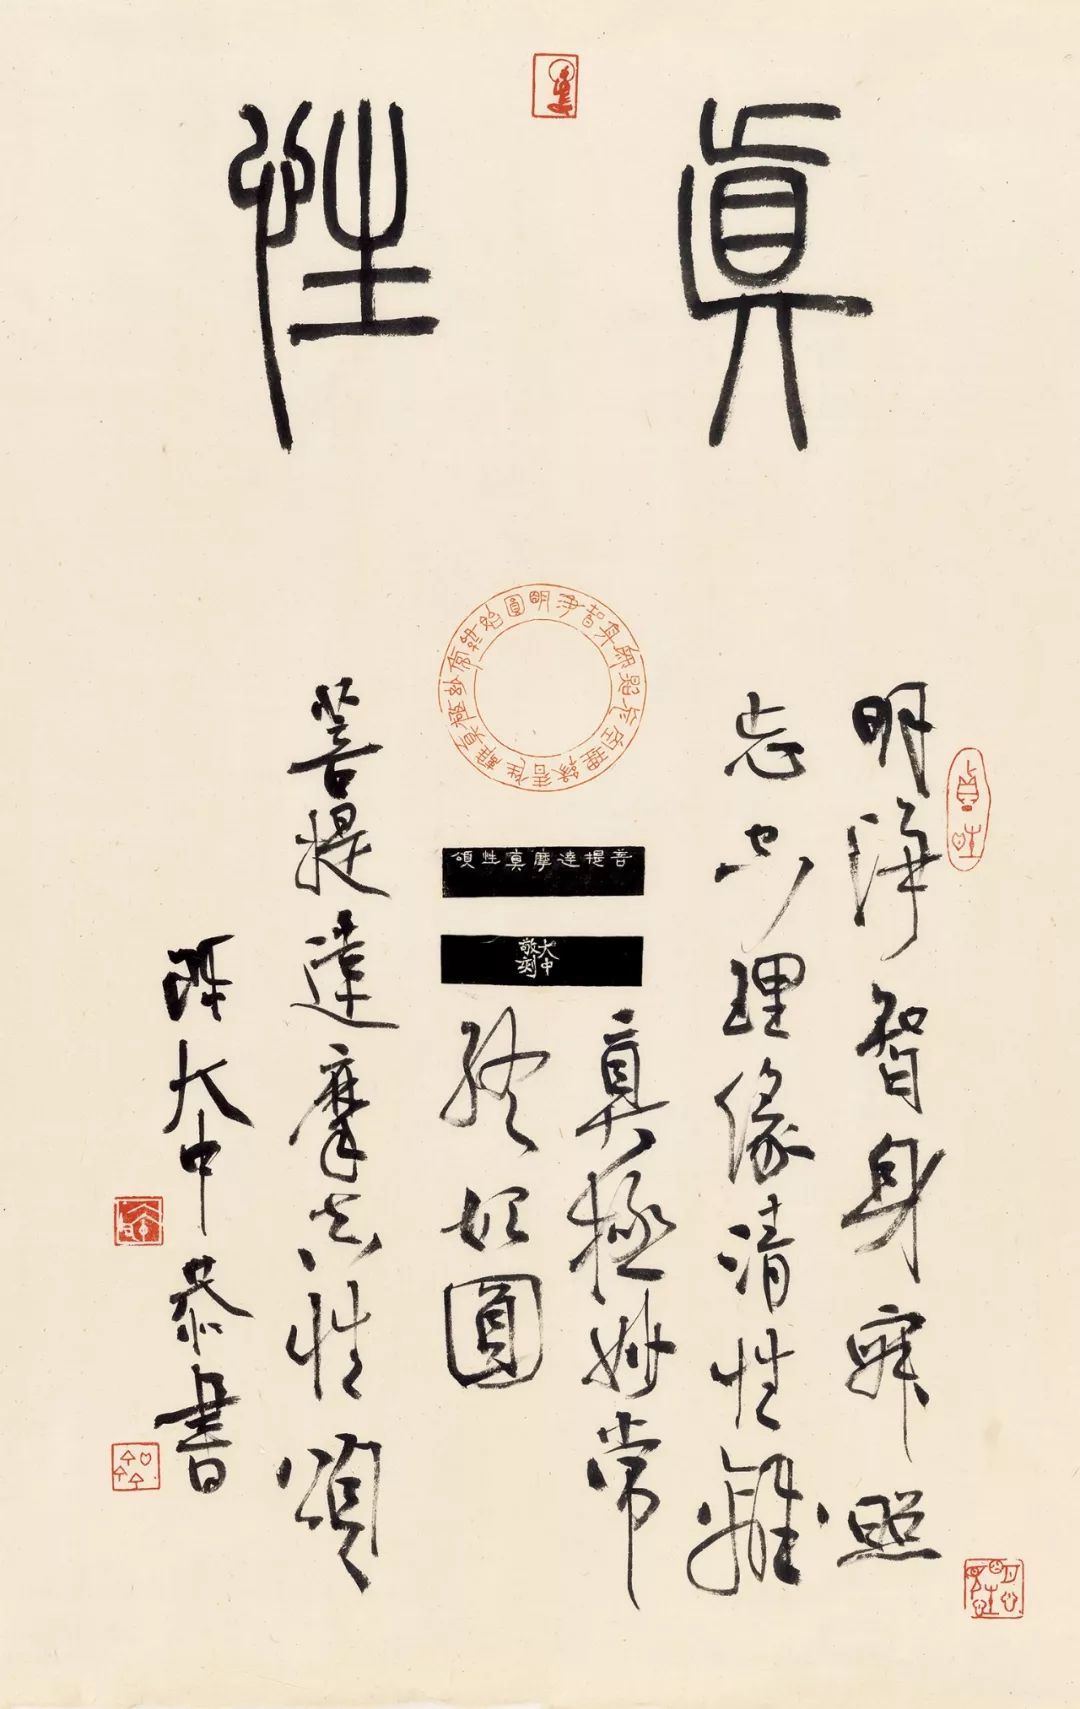 眞性
明淨智身寂照
忘空理緣清性離
真極妙常
終始圓
明淨智身寂照忘空理緣清性離真極妙常終始圓
菩提達摩真性頌
大中
敬刻
菩提達摩真性頌
陳大中恭書
真性
明心見性